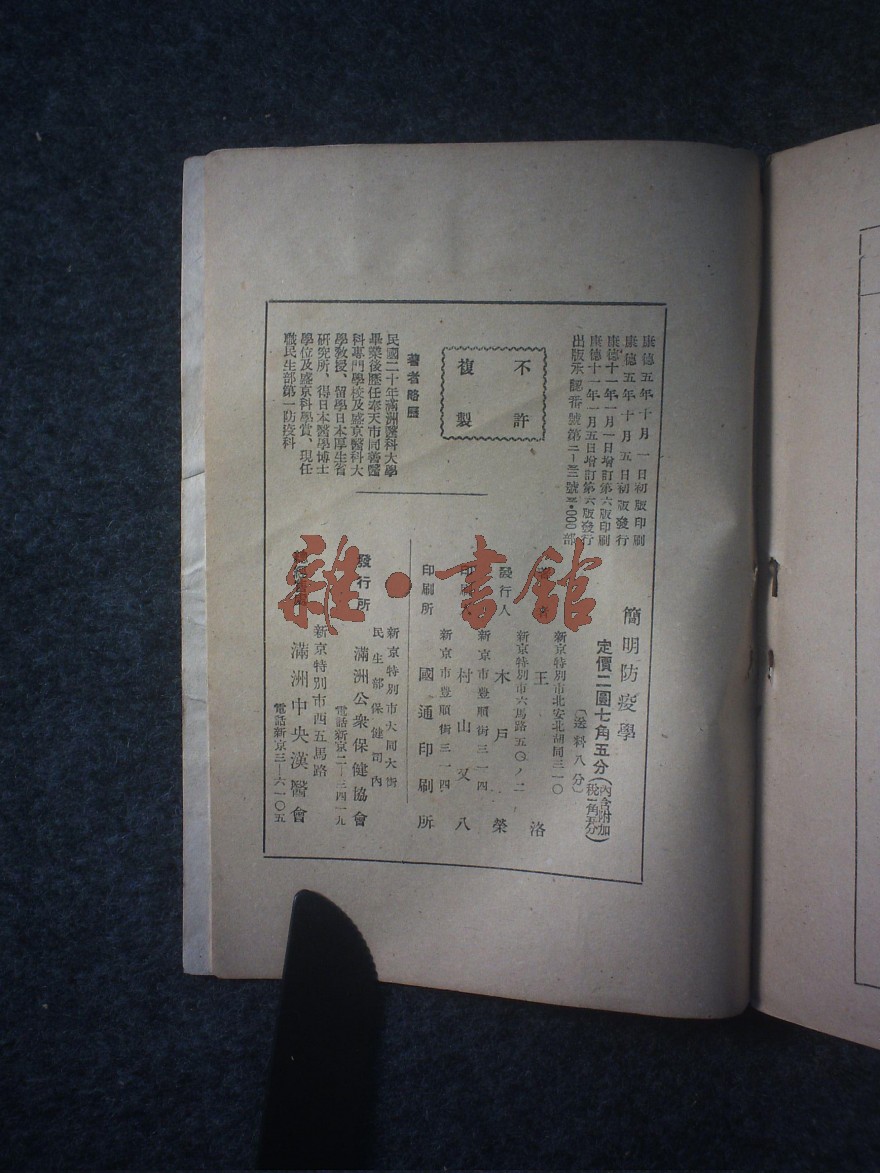 康德五年十月一日初版印刷
康德五年十月五日初版發行
康德十一年一月一日增訂第六版印刷
康德十一年一月五日增訂第六版發行
出版承認番號第三一三號
000部
不許
複製
著者略歷
民國二十年滿洲醫科大學
畢業後歷任奉天市同善醫
科專門學校及盛京醫科大
學教授、留學日本厚生省
研究所、得日本醫學博士
學位及盛京科學賞、現任
職民生部第一防疫科
簡明防疫學
定價二圓七角五分(內含附加稅一角五分)
(送料八分)
新京特別市北安北胡同三一〇
王洛
新京特別市六馬路五〇ノ二
發行人 木戶榮
新京市豊順街三一四
村山又八
新京市豊順街三一四
印刷所 國通印刷所
新京特別市大同大街
民生部保健司內
發行所 滿洲公衆保健協會
電話新京二—三四一九
新京特別市西五馬路
滿洲中央漢醫會
電話新京三—六一〇五
雜·書館